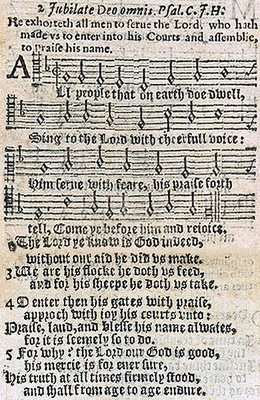 2 Jubilate Deo omnis. Psal. C. J.H:
He exhorteth all men to serue the Lord, who hath
made vs to enter into his Courts and assemblie,
to praise his name.
ALl people that on earth doe dwell,
Sing to the Lord with cheerfull voice:
Him serue with feare, his praise forth
tell, Come ye before him and reioice.
The Lord ye know is God indeed,
without our aid he did vs make.
3 We are his flocke he doth vs feed,
and for his sheepe he doth vs take.
4 O enter then his gates with praise,
approch with ioy his courts vnto:
Praise, laud, and blesse his name alwaies,
for it is seemely so to do.
5 For why? the Lord our God is good,
his mercie is for euer sure,
His truth at all times firmely stood,
and shall from age to age endure.